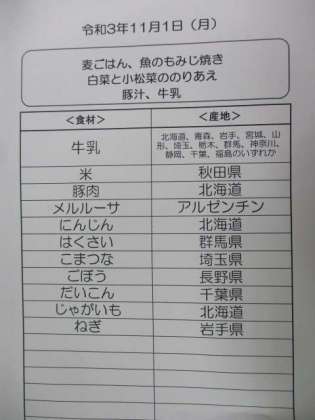 令和3年11月1日（月）
麦ごはん、魚のもみじ焼き
白菜と小松菜ののりあえ
豚汁、牛乳
＜食材＞ ＜産地＞
牛乳 北海道、青森、岩手、宮城、山
形、埼玉、栃木、群馬、神奈川、
静岡、千葉、福島のいずれか
米 秋田県
豚肉 北海道
メルルーサ アルゼンチン
にんじん 北海道
はくさい 群馬県
こまつな 埼玉県
ごぼう 長野県
だいこん 千葉県
じゃがいも 北海道
ねぎ 岩手県